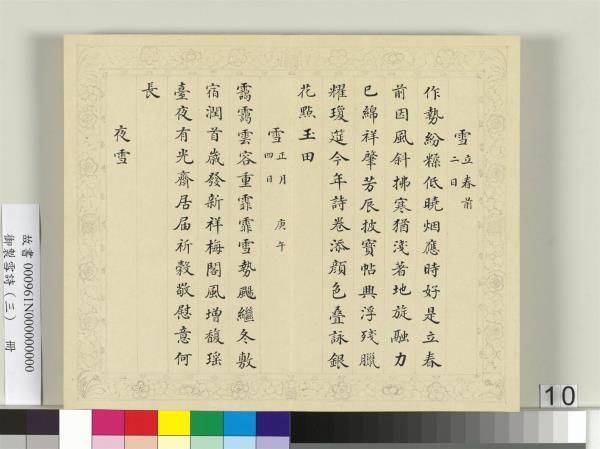 雪 立春前二日
作勢紛糅低曉烟應時好是立春
前因風斜拂寒猶淺著地旋融力
已綿祥肇芳辰披寶帖興浮殘臘
耀瓊筵今年詩卷添顏色疊詠銀
花點玉田
雪 正月四日 庚午
靄靄雲容重霏霏雪勢颺繼冬敷
宿潤首歲發新祥梅閣風增馥瑤
臺夜有光齋居屆祈穀敬慰意何
長
夜雪
故書 000961N000000000
御製雪詩(三) 冊
10